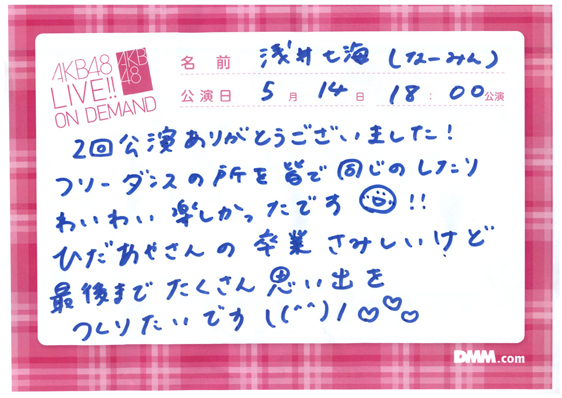 AKB48
LIVE!!
ON DEMAND
AKB
48
名前 浅井七海(なーみん)
公演日 5月14日 18:00公演
2回公演ありがとうございました!
フリーダンスの所を皆で同じのしたり
わいわい楽しかったです!!
ひだあやさんの卒業さみしいけど
最後までたくさん思い出を
つくりたいです\(^^)/♡♡♡
DMM.com